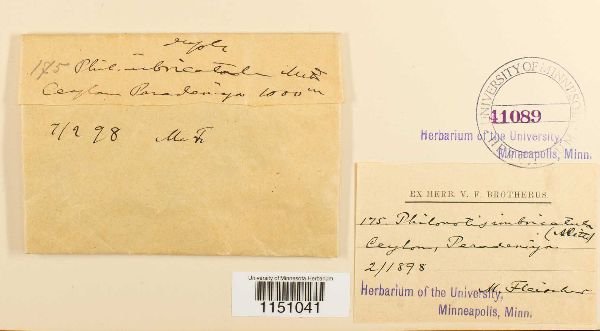 175 Phil. imbricatula Mitt
Ceylon Paradeniya 1000 m
7/2 98 M. F.
UNIVERSITY OF MINNESOTA
41089
Herbarium of the University,
Minneapolis, Minn.
EX HERB. V. F. BROTHERUS.
175. Philonotis imbricatula
(Mitt)
Ceylon, Peradeniya
2/1898
M. Fleischer
Herbarium of the University,
Minneapolis, Minn.
University of Minnesota Herbarium
1151041